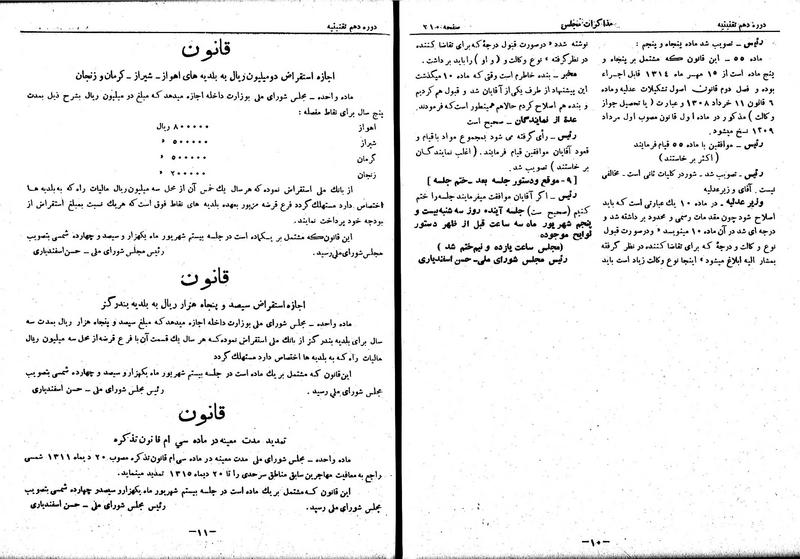 دوره دهم تقنینیه
مذاکرات مجلس
صفحه ۲۱۰۰
رئیس ـ تصویب شد ماده پنجاه و پنجم :
ماده ۵۵ ـ این قانون که مشتمل بر پنجاه و
پنج ماده است از ۱۵ مهر ماه ۱۳۱۴ قابل اجراء
بوده و فصل دوم قانون اصول تشکیلات عدلیه و ماده
۶ قانون ۱۱ خرداد ۱۳۰۸ و عبارت ( یا تحصیل جواز
وکالت ) مذکور در ماده اول قانون مصوب اول مرداد
۱۳۰۹ نسخ میشود.
رئیس ـ موافقین با ماده ۵۵ قیام فرمایند
( اکثر برخاستند )
رئیس ـ تصویب شد . شور در کلیات ثانی است ـ مخالفی
نیست . آقای وزیر عدلیه
وزیر عدلیه ـ در ماده ۱۰ یک عبارتی است که باید
اصلاح شود چون مقدمات رسمی و محدود بر داشته شد و
درجه ای شد در آن ماده ۱۰ مینویسد « و درصورت قبول
نوع وکالت و درجهٔ که برای تقاضا کننده در نظر گرفته
بمشار الیه ابلاغ میشود » اینجا نوع وکالت زیاد است باید
نوشته شود « درصورت قبول درجهٔ که برای تقاضا کننده
در نظر گرفته » نوع وکالت و ( و او ) را باید برداشت .
مخبر ـ بنده خاطرم است وقتی که ماده ۱۰ میگذشت
این پیشنهاد از طرف یکی از آقایان شد و قبول هم کردیم
و بنده هم اصلاح کردم حالا هم همینطور است که فرمودند.
عدهٔ از نمایندگان ـ صحیح است
رئیس ـ رأی گرفته می شود بمجموع مواد با قیام و
قعود آقایان موافقین قیام فرمایند . ( اغلب نمایندگان
برخاستند ) تصویب شد .
[ ۹ ـ موقع و دستور جلسه بعد ـ ختم جلسه ]
رئیس ـ اگر آقایان موافقت میفرمایند جلسه را ختم
کنیم (صحیح است) جلسه آینده روز سه شنبه بیست و
پنجم شهریور ماه سه ساعت قبل از ظهر دستور
لوایح موجوده
(مجلس ساعت یازده و نیم ختم شد )
رئیس مجلس شورای ملی ـ حسن اسفندیاری
ـ۱۰ـ
دوره دهم تقنینیه
قانون
اجازه استقراض دو میلیون ریال به بلدیه های اهواز ـ شیراز ـ کرمان و زنجان
ماده واحده ـ مجلس شورای ملی بوزارت داخله اجازه میدهد که مبلغ دو میلیون ریال بشرح ذیل بمدت
پنج سال برای نقاط مفصله :
اهواز ۸۰۰۰۰۰ ریال
شیراز ۵۰۰۰۰۰ «
کرمان ۵۰۰۰۰۰ «
زنجان ۲۰۰۰۰۰ «
از بانک ملی استقراض نموده که هر سال یک خمس آن از محل سه میلیون ریال مالیات راه که به بلدیه ها
اختصاص دارد مستهلک گردد فرع قرضه مزبور بعهده بلدیه های نقاط فوق است که هر یک نسبت بمبلغ استقراض از
بودجه خود پرداخت نمایند .
این قانون که مشتمل بر یکماده است در جلسه بیستم شهریور ماه یکهزار و سیصد و چهارده شمسی بتصویب
مجلس شورای ملی رسید . رئیس مجلس شورای ملی ـ حسن اسفندیاری
قانون
اجازه استقراض سیصد و پنجاه هزار ریال به بلدیه بندر گز
ماده واحده ـ مجلس شورای ملی بوزارت داخله اجازه میدهد که مبلغ سیصد و پنجاه هزار ریال بمدت سه
سال برای بلدیه بندر گز از بانک ملی استقراض نموده که هر سال یک قسمت آن با فرع قرضه از محل سه میلیون ریال
مالیات راه که به بلدیه ها اختصاص دارد مستهلک گردد
این قانون که مشتمل بر یک ماده است در جلسه بیستم شهریور ماه یکهزار و سیصد و چهارده شمسی بتصویب
مجلس شورای ملی رسید . رئیس مجلس شورای ملی ـ حسن اسفندیاری
قانون
تمدید مدت معینه در ماده سی ام قانون تذکره
ماده واحده ـ مجلس شورای ملی مدت معینه در ماده سی ام قانون تذکره مصوب ۲۰ دیماه ۱۳۱۱ شمسی
راجع به معافیت مهاجرین سابق مناطق سرحدی را تا ۲۰ دیماه ۱۳۱۵ تمدید مینماید.
این قانون که مشتمل بر یک ماده است در جلسه بیستم شهریور ماه یکهزار و سیصد و چهارده شمسی بتصویب
مجلس شورای ملی رسید. رئیس مجلس شورای ملی ـ حسن اسفندیاری
ـ۱۱ـ